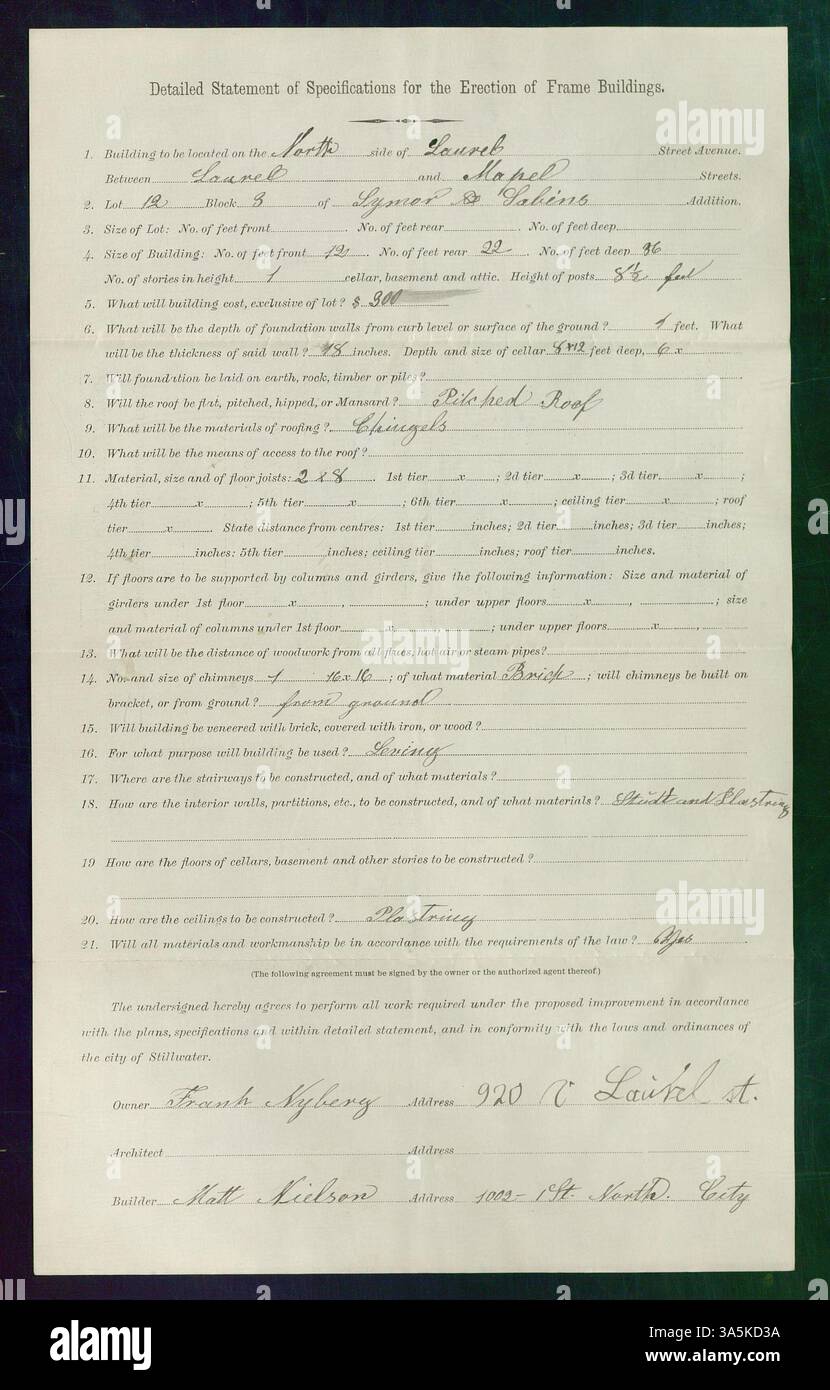 Detailed Statement of Specifications for the Erection of Frame Buildings.
1. Building to be located on the North side of Laurel Street Avenue.
Between Laurel and Mapel Streets.
2. Lot 12 Block 3 of Symor & Sabins Addition.
3. Size of Lot: No. of feet front No. of feet rear No. of feet deep
4. Size of Building: No. of feet front 12 No. of feet rear 22 No. of feet deep 36
No. of stories in height 1 cellar, basement and attic. Height of posts 8½ feet
5. What will building cost, exclusive of lot? $ 300
6. What will be the depth of foundation walls from curb level or surface of the ground? 1 feet. What
will be the thickness of said wall? 18 inches. Depth and size of cellar 8x12 feet deep, 6 x
7. Will foundation be laid on earth, rock, timber or piles?
8. Will the roof be flat, pitched, hipped, or Mansard? Pitched Roof
9. What will be the materials of roofing? Chingels
10. What will be the means of access to the roof?
11. Material, size and of floor joists: 2 x 8 1st tier x ; 2d tier x ; 3d tier x ;
4th tier x ; 5th tier x ; 6th tier x ; ceiling tier x ; roof
tier x State distance from centres: 1st tier inches; 2d tier inches; 3d tier inches;
4th tier inches: 5th tier inches; ceiling tier inches; roof tier inches.
12. If floors are to be supported by columns and girders, give the following information: Size and material of
girders under 1st floor x , ; under upper floors x , ; size
and material of columns under 1st floor x ; under upper floors x ,
13. What will be the distance of woodwork from all flues, hot air or steam pipes?
14. No. and size of chimneys 1 16x16 ; of what material Brick ; will chimneys be built on
bracket, or from ground? from ground
15. Will building be veneered with brick, covered with iron, or wood?
16. For what purpose will building be used? Leving
17. Where are the stairways to be constructed, and of what materials?
18. How are the interior walls, partitions, etc., to be constructed, and of what materials? Studt and Plastring
19 How are the floors of cellars, basement and other stories to be constructed?
20. How are the ceilings to be constructed? Plastring
21. Will all materials and workmanship be in accordance with the requirements of the law? Yes
(The following agreement must be signed by the owner or the authorized agent thereof.)
The undersigned hereby agrees to perform all work required under the proposed improvement in accordance
with the plans, specifications and within detailed statement, and in conformity with the laws and ordinances of
the city of Stillwater.
Owner Frank Nyberg Address 920 Laurel st.
Architect Address
Builder Matt Nielson Address 1002 - 1st. North. City
alamy
Image ID: 3A5KD3A
www.alamy.com